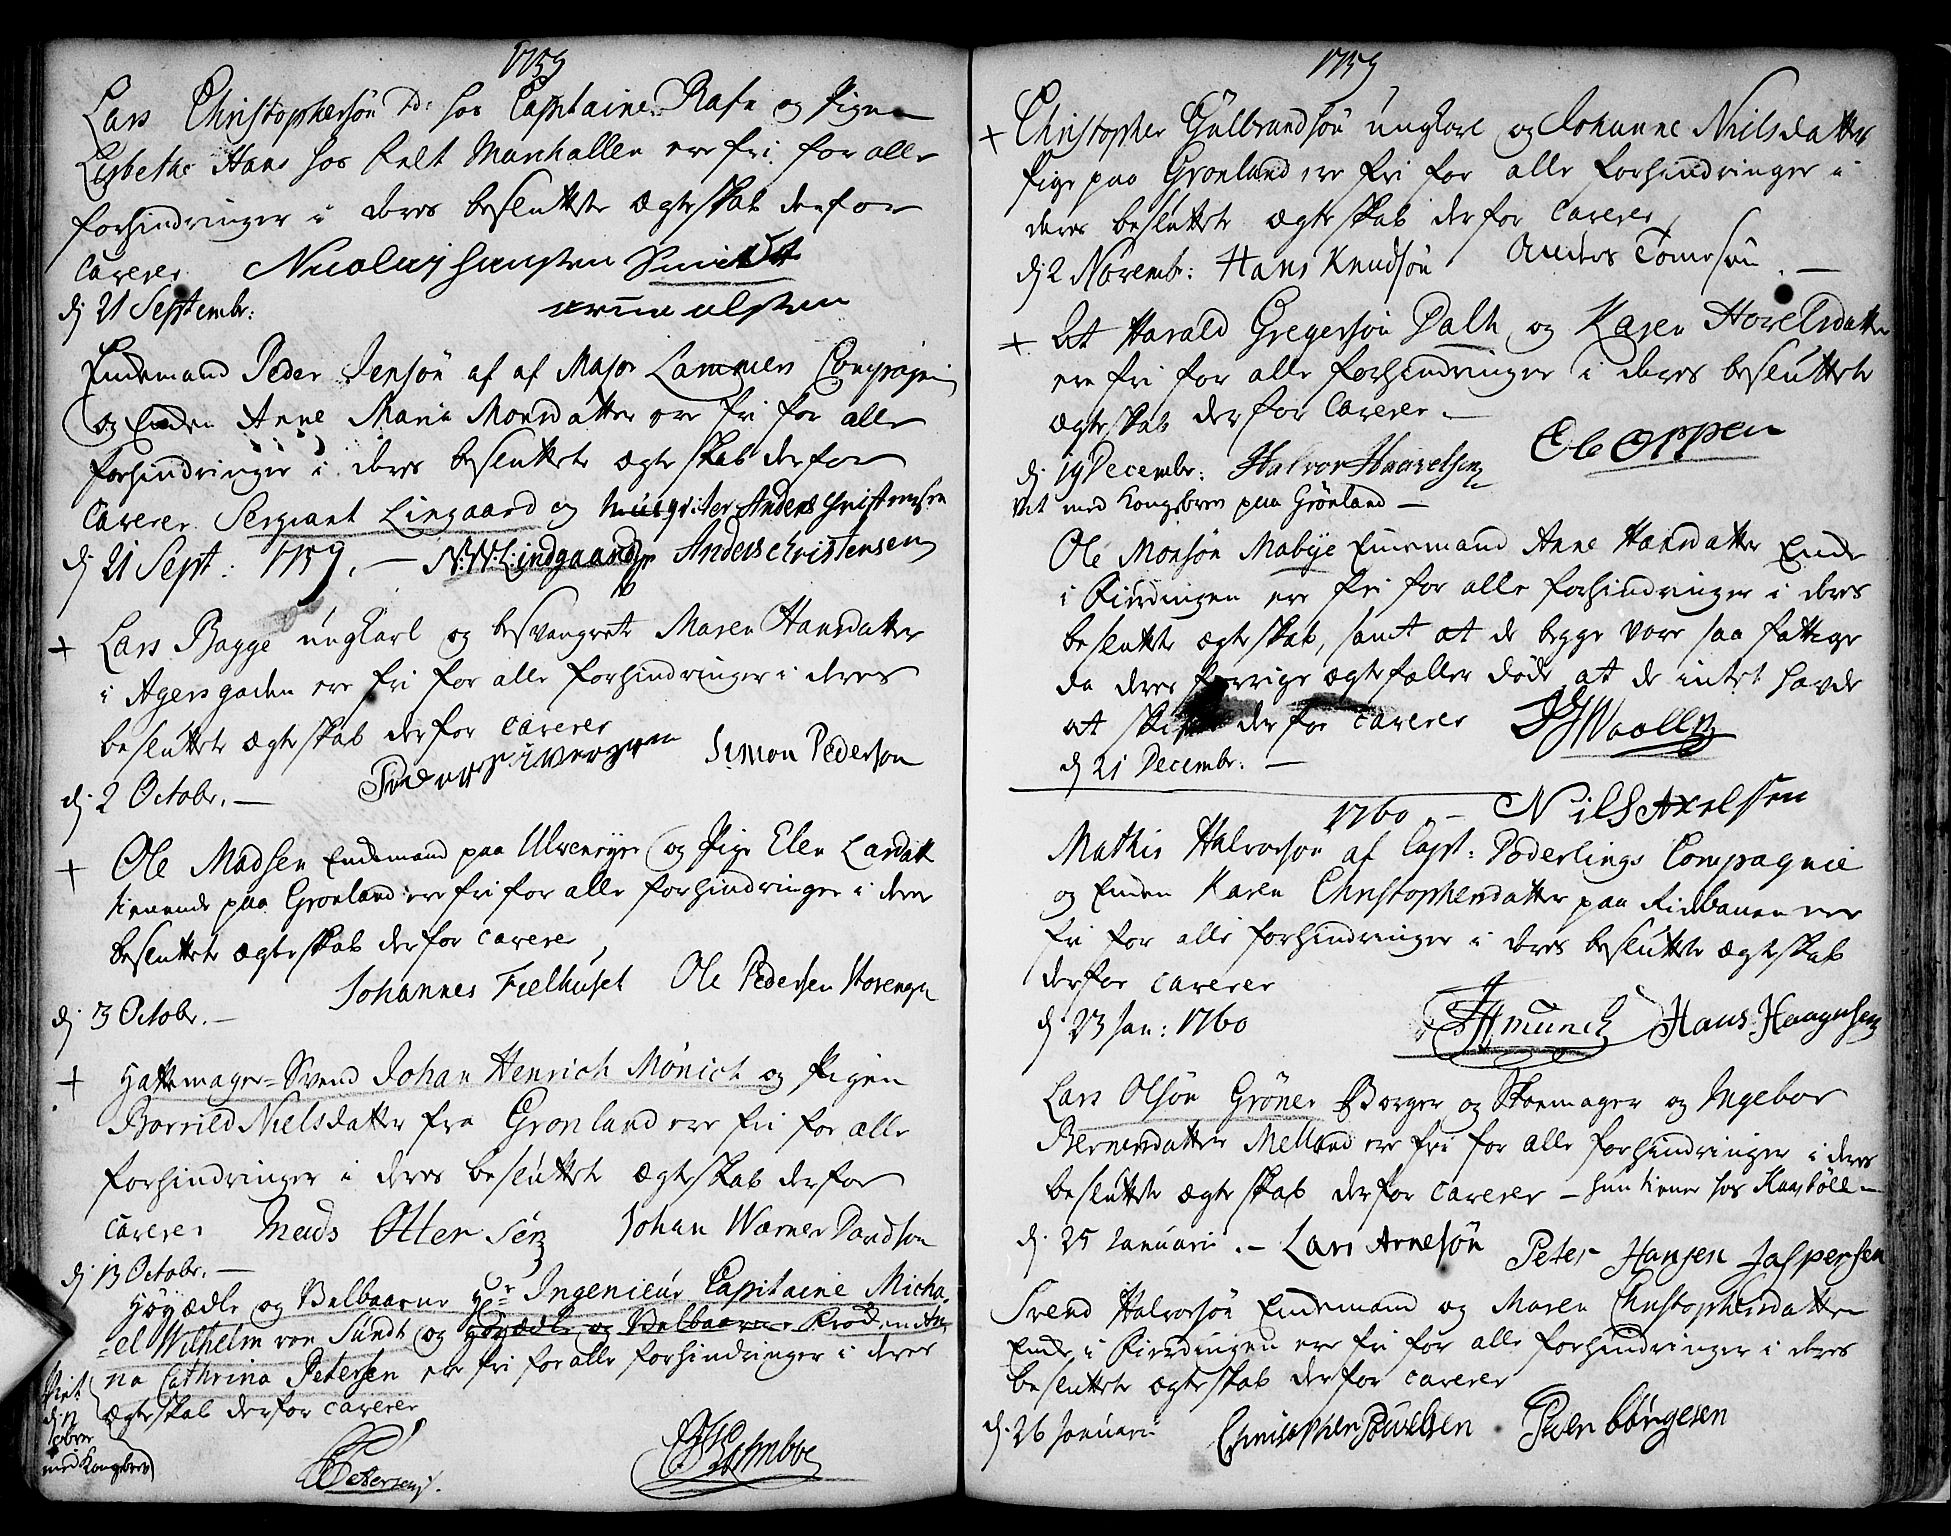 1759
Lars Christophersön hos Captaine Rafn og Pigen
Lisbethe Hans hos Marchallen ere fri for alle
forhindringer i deres besluttete ægteskab derfor
caverer Nicolay Hansen Smidt
d 21 Septembr: Arne Olsen
Enkemand Peder Jensön af af Major Lammers Compagni
og Enken Anne Maria Monsdatter ere fri for alle
forhindringer i deres besluttete ægteskab derfor
caverer Sergiant Lingaard og Anders Christensen
d 21 Sept: 1759. — N: W: Lindgaard Anders Christensen
+ Lars Bagge ungkarl og besvangrede Maren Hansdatter
i Agersgaden ere fri for alle forhindringer i deres
besluttete ægteskab derfor caverer
Peder Siversen Simon Pederson
d 2 Octobr. —
+ Ole Madsen Enkemand paa Ulvenöyse og Pige Elen Larsdatt
tienende paa Grønland ere fri for alle forhindringer i deres
besluttete ægteskab derfor caverer
Johannes Fielhuset Ole Pedersen Horengn
d 3 Octobr. —
+ Hattemager-Svend Johan Henrich Mönich og Pigen
Borrild Nielsdatter fra Gronland ere fri for alle
forhindringer i deres besluttete ægteskab derfor
caverer Mads Ottersen Johan Warner Davidson
d 13 Octobr. —
Höyædle og Velbaarne Hr Ingenieur Capitaine Micha
-el Wilhelm von Sundt og Höyædle og Velbaarne An
na Cathrina Petersen ere fri for alle forhindringer i deres
ægteskab derfor caverer
Viet
d 12
med Kongebrev
Petersen J. Holmboe
1759
+ Christopher Gulbrandsön ungkarl og Johanne Nielsdatter
Pige paa Gronland ere fri for alle forhindringer i
deres besluttete ægteskab derfor caverer
d 2 Novembr: Hans Knudsön Anders Tomesön. —
+ At Harald Gregersön Dalh og Karen Hovelsdatter
ere fri for alle forhindringer i deres besluttete
ægteskab derfor caverer. —
d 19 Decembr: Halvor Haavelsen Ole Oppen
Vit med Kongebrev paa Grönland —
Ole Monsön Mabye Enkemand Anne Hansdatter Enke
i Pierdingen ere fri for alle forhindringer i deres
besluttete ægteskab, samt at de begge vare saa fattige
da deres forrige ægtefæller döde at de intet havde
at skifte derfor caverer Woollez
d 21 Decembr: —
1760 — Nils Axelssen
Mathis Halvorsön af Capt: Poderlings Compagnie
og Enken Karen Christophersdatter paa Ridebanen ere
fri for alle forhindringer i deres besluttete ægteskab
derfor caverer
d 23 Jan: 1760 Munch Hans Haagensen
Lars Olsön Gröner Borger og Skoemager og Ingebor
Bernersdatter Melland ere fri for alle forhindringer i deres
besluttete ægteskab derfor caverer — hun tiener hos Karböll —
d. 25 Januarii. — Lars Arnesön Peter Hansen Jaspersen
Svend Halvorsön Enkemand og Maren Christophersdatter
Enke i Pierdingen ere fri for alle forhindringer i deres
besluttete ægteskab derfor caverer
d. 26 Januarii Christopher Powelsen Peder Börgesen